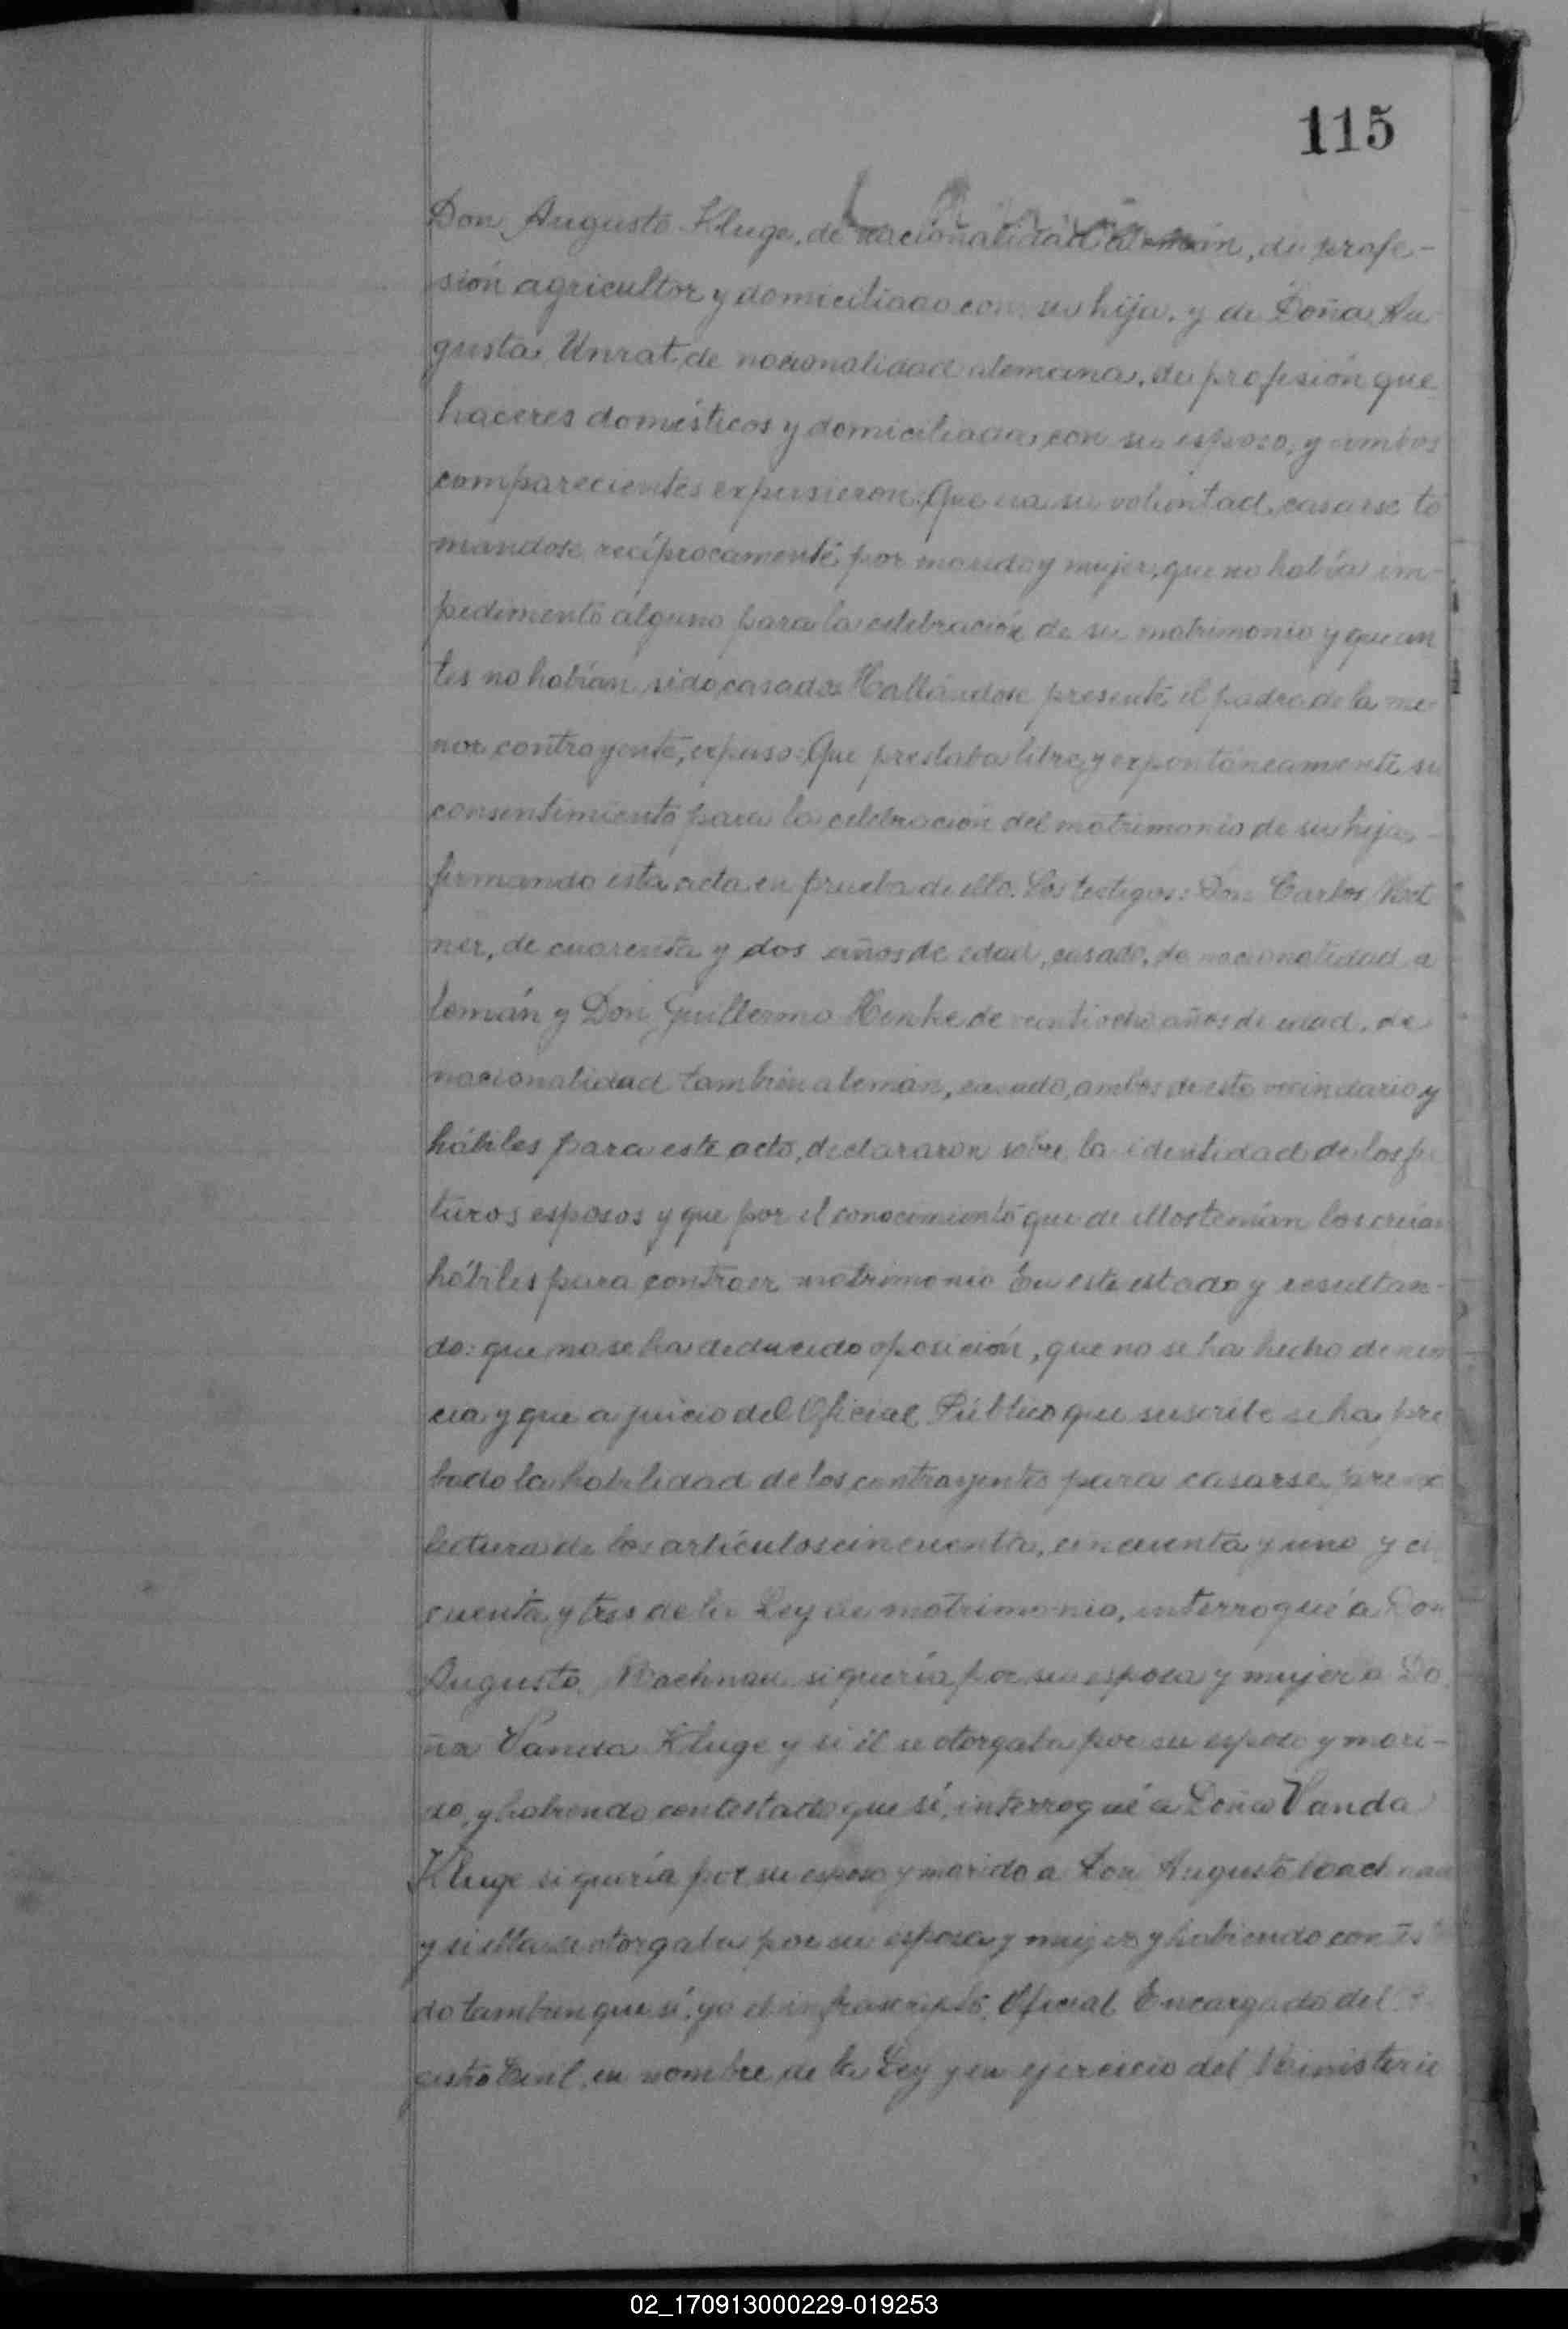 115
Don Augusto Kluge, de nacionalidad alemán, de profe-
sión agricultor y domiciliado con su hija, y de Doña Au
gusta Unrat, de nacionalidad alemana, de profesión que
haceres domésticos y domiciliada con su esposo, y ambos
comparecientes expusieron: Que era su voluntad casarse to
mandose recíprocamente por marido y mujer, que no había im-
pedimento alguno para la celebración de su matrimonio y que an
tes no habían sido casados. Hallándose presente el padre de la me
nor contrayente, expuso: Que prestaba libre y expontáneamente su
consentimiento para la celebración del matrimonio de su hija,-
firmando esta acta en prueba de ello. Los testigos: Don Carlos
ner, de cuarenta y dos años de edad, casado, de nacionalidad a
lemán y Don Guillermo Henke de veintiocho años de edad, de
nacionalidad también alemán, casado, ambos de este vecindario y
hábiles para este acto, declararon sobre la identidad de los fu
turos esposos y que por el conocimiento que de ellos tenían los creían
hábiles para contraer matrimonio. En este estado y resultan-
do: que no se ha deducido oposición, que no se ha hecho denun
cia y que a juicio del Oficial Público que suscribe se ha pro
bado la habilidad de los contrayentes para casarse, previa
lectura de los artículos cincuenta, cincuenta y uno y cin
cuenta y tres de la Ley de matrimonio, interrogué a Don
Augusto si quería por su esposa y mujer a Do
ña Vanda Kluge y si él se otorgaba por su esposo y mari-
do, y habiendo contestado que sí, interrogué a Doña Vanda
Kluge si quería por su esposo y marido a Don Augusto
y si ella se otorgaba por su esposa y mujer y habiendo contesta
do tambien que sí, yo el infrascripto, Oficial Encargado del Re
gistro Civil, en nombre de la Ley y en ejercicio del Ministerio
02_170913000229-019253